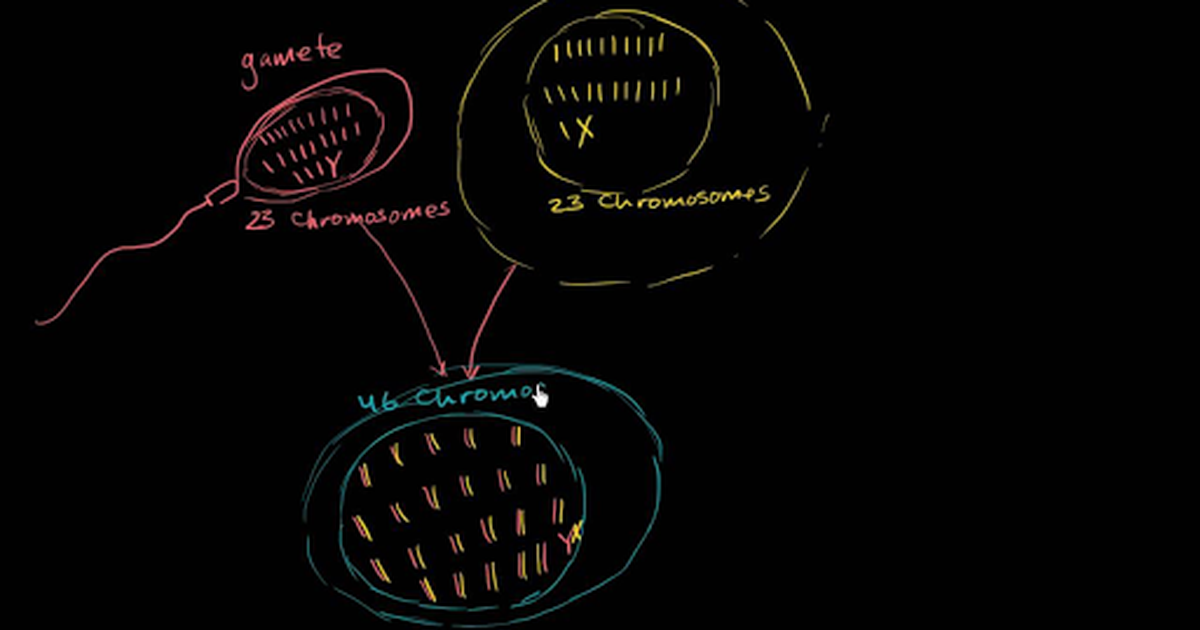 gamete
Y
X
23 Chromosomes
23 Chromosomes
46 Chromos
YX